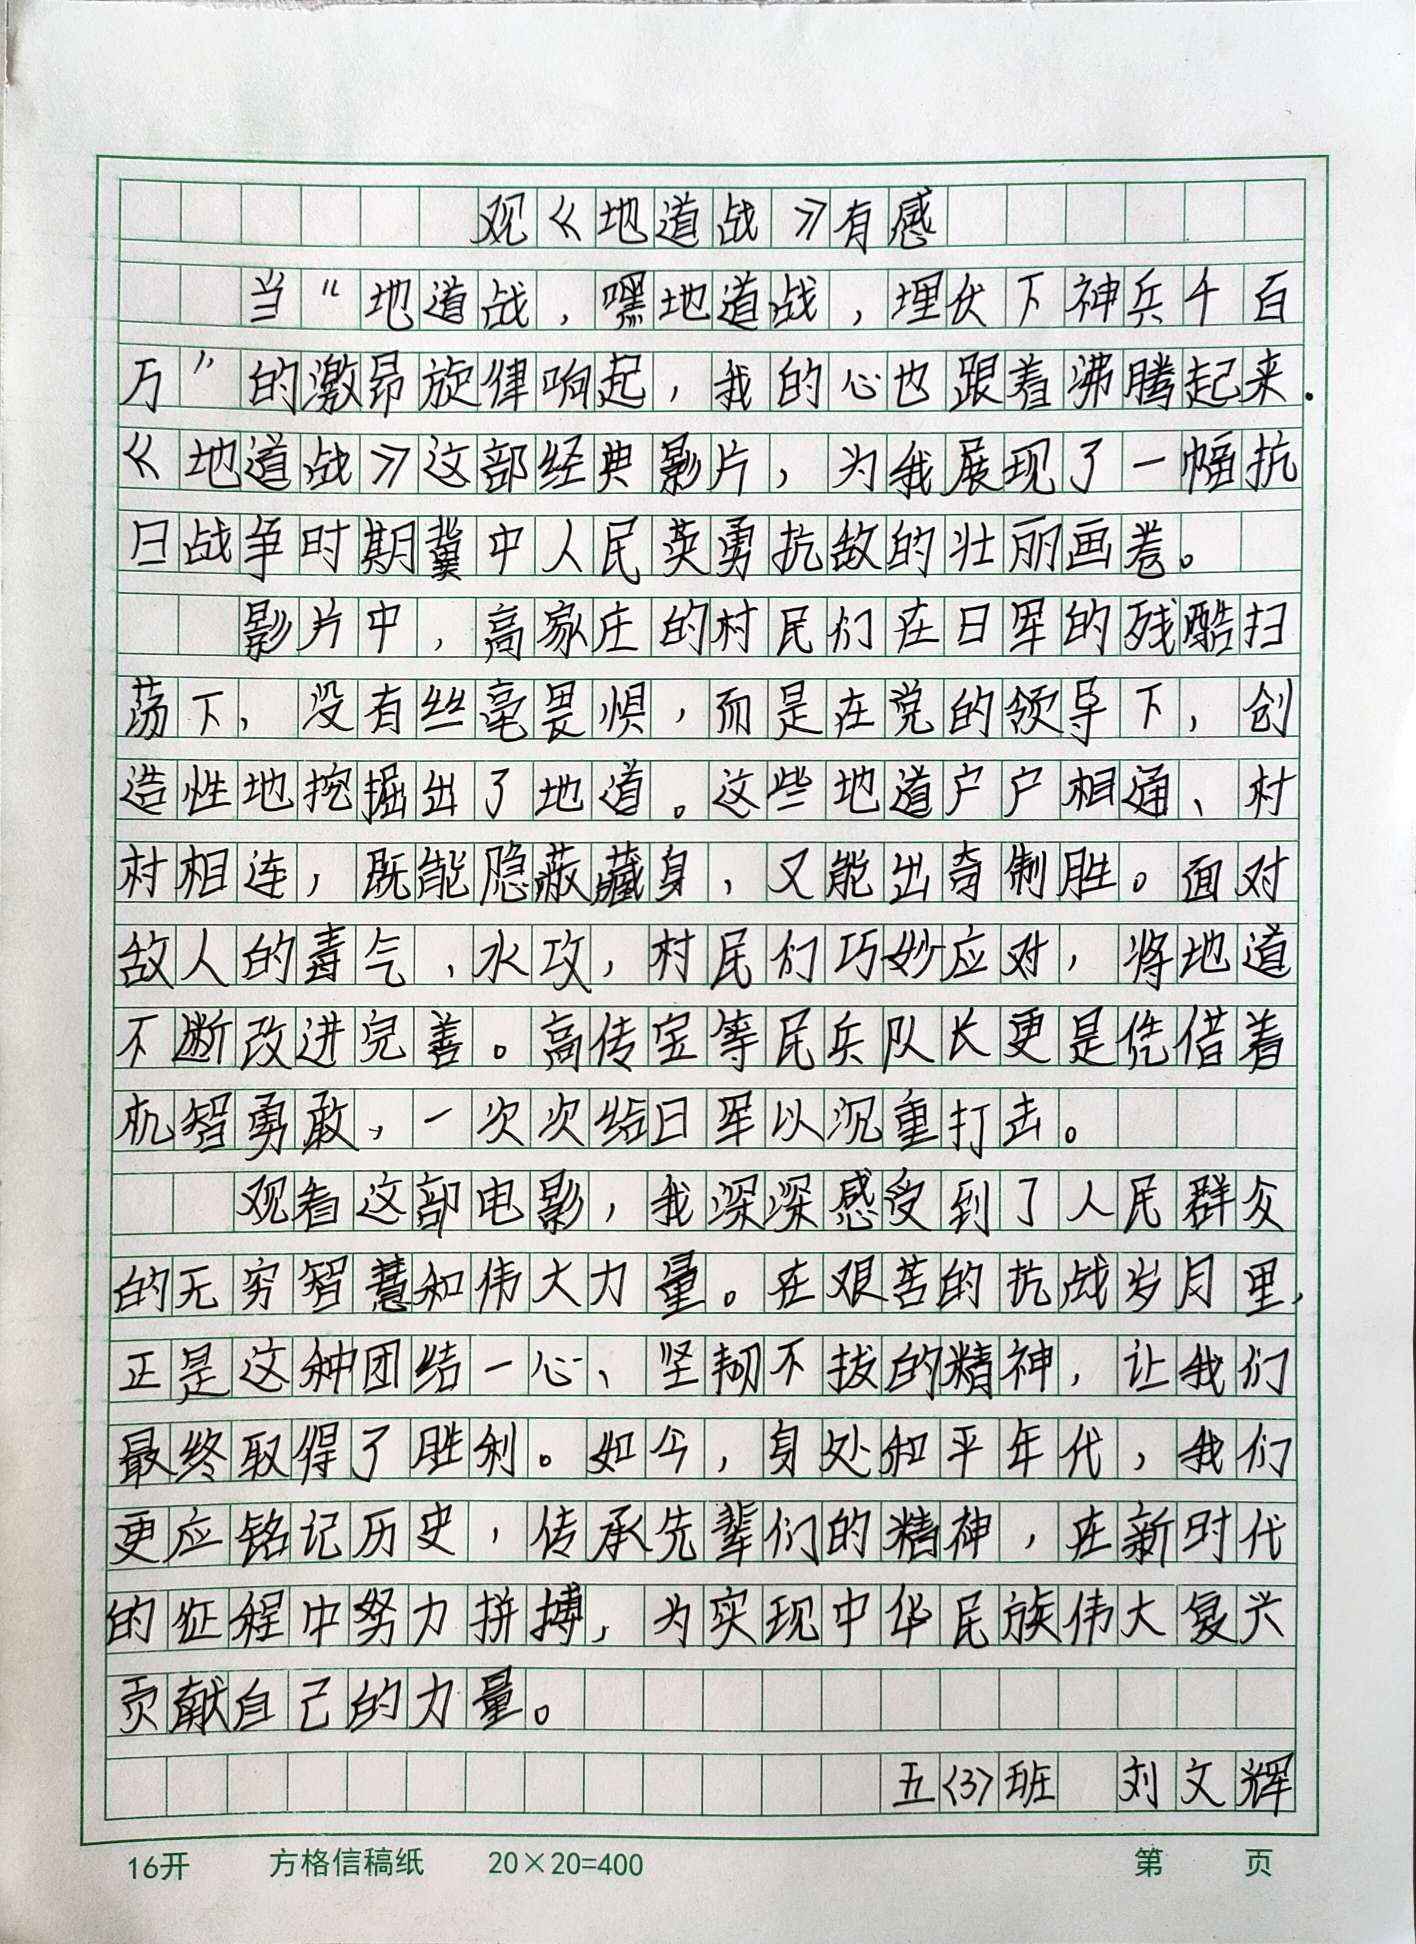 观《地道战》有感
当“地道战，嘿地道战，埋伏下神兵千百
万”的激昂旋律响起，我的心也跟着沸腾起来.
《地道战》这部经典影片，为我展现了一幅抗
日战争时期冀中人民英勇抗敌的壮丽画卷。
影片中，高家庄的村民们在日军的残酷扫
荡下，没有丝毫畏惧，而是在党的领导下，创
造性地挖掘出了地道。这些地道户户相通、村
村相连，既能隐蔽藏身，又能出奇制胜。面对
敌人的毒气、水攻，村民们巧妙应对，将地道
不断改进完善。高传宝等民兵队长更是凭借着
机智勇敢，一次次给日军以沉重打击。
观看这部电影，我深深感受到了人民群众
的无穷智慧和伟大力量。在艰苦的抗战岁月里，
正是这种团结一心、坚韧不拔的精神，让我们
最终取得了胜利。如今，身处和平年代，我们
更应铭记历史，传承先辈们的精神，在新时代
的征程中努力拼搏，为实现中华民族伟大复兴
贡献自己的力量。
五(3)班 刘文辉
16开 方格信稿纸 20×20=400 第 页